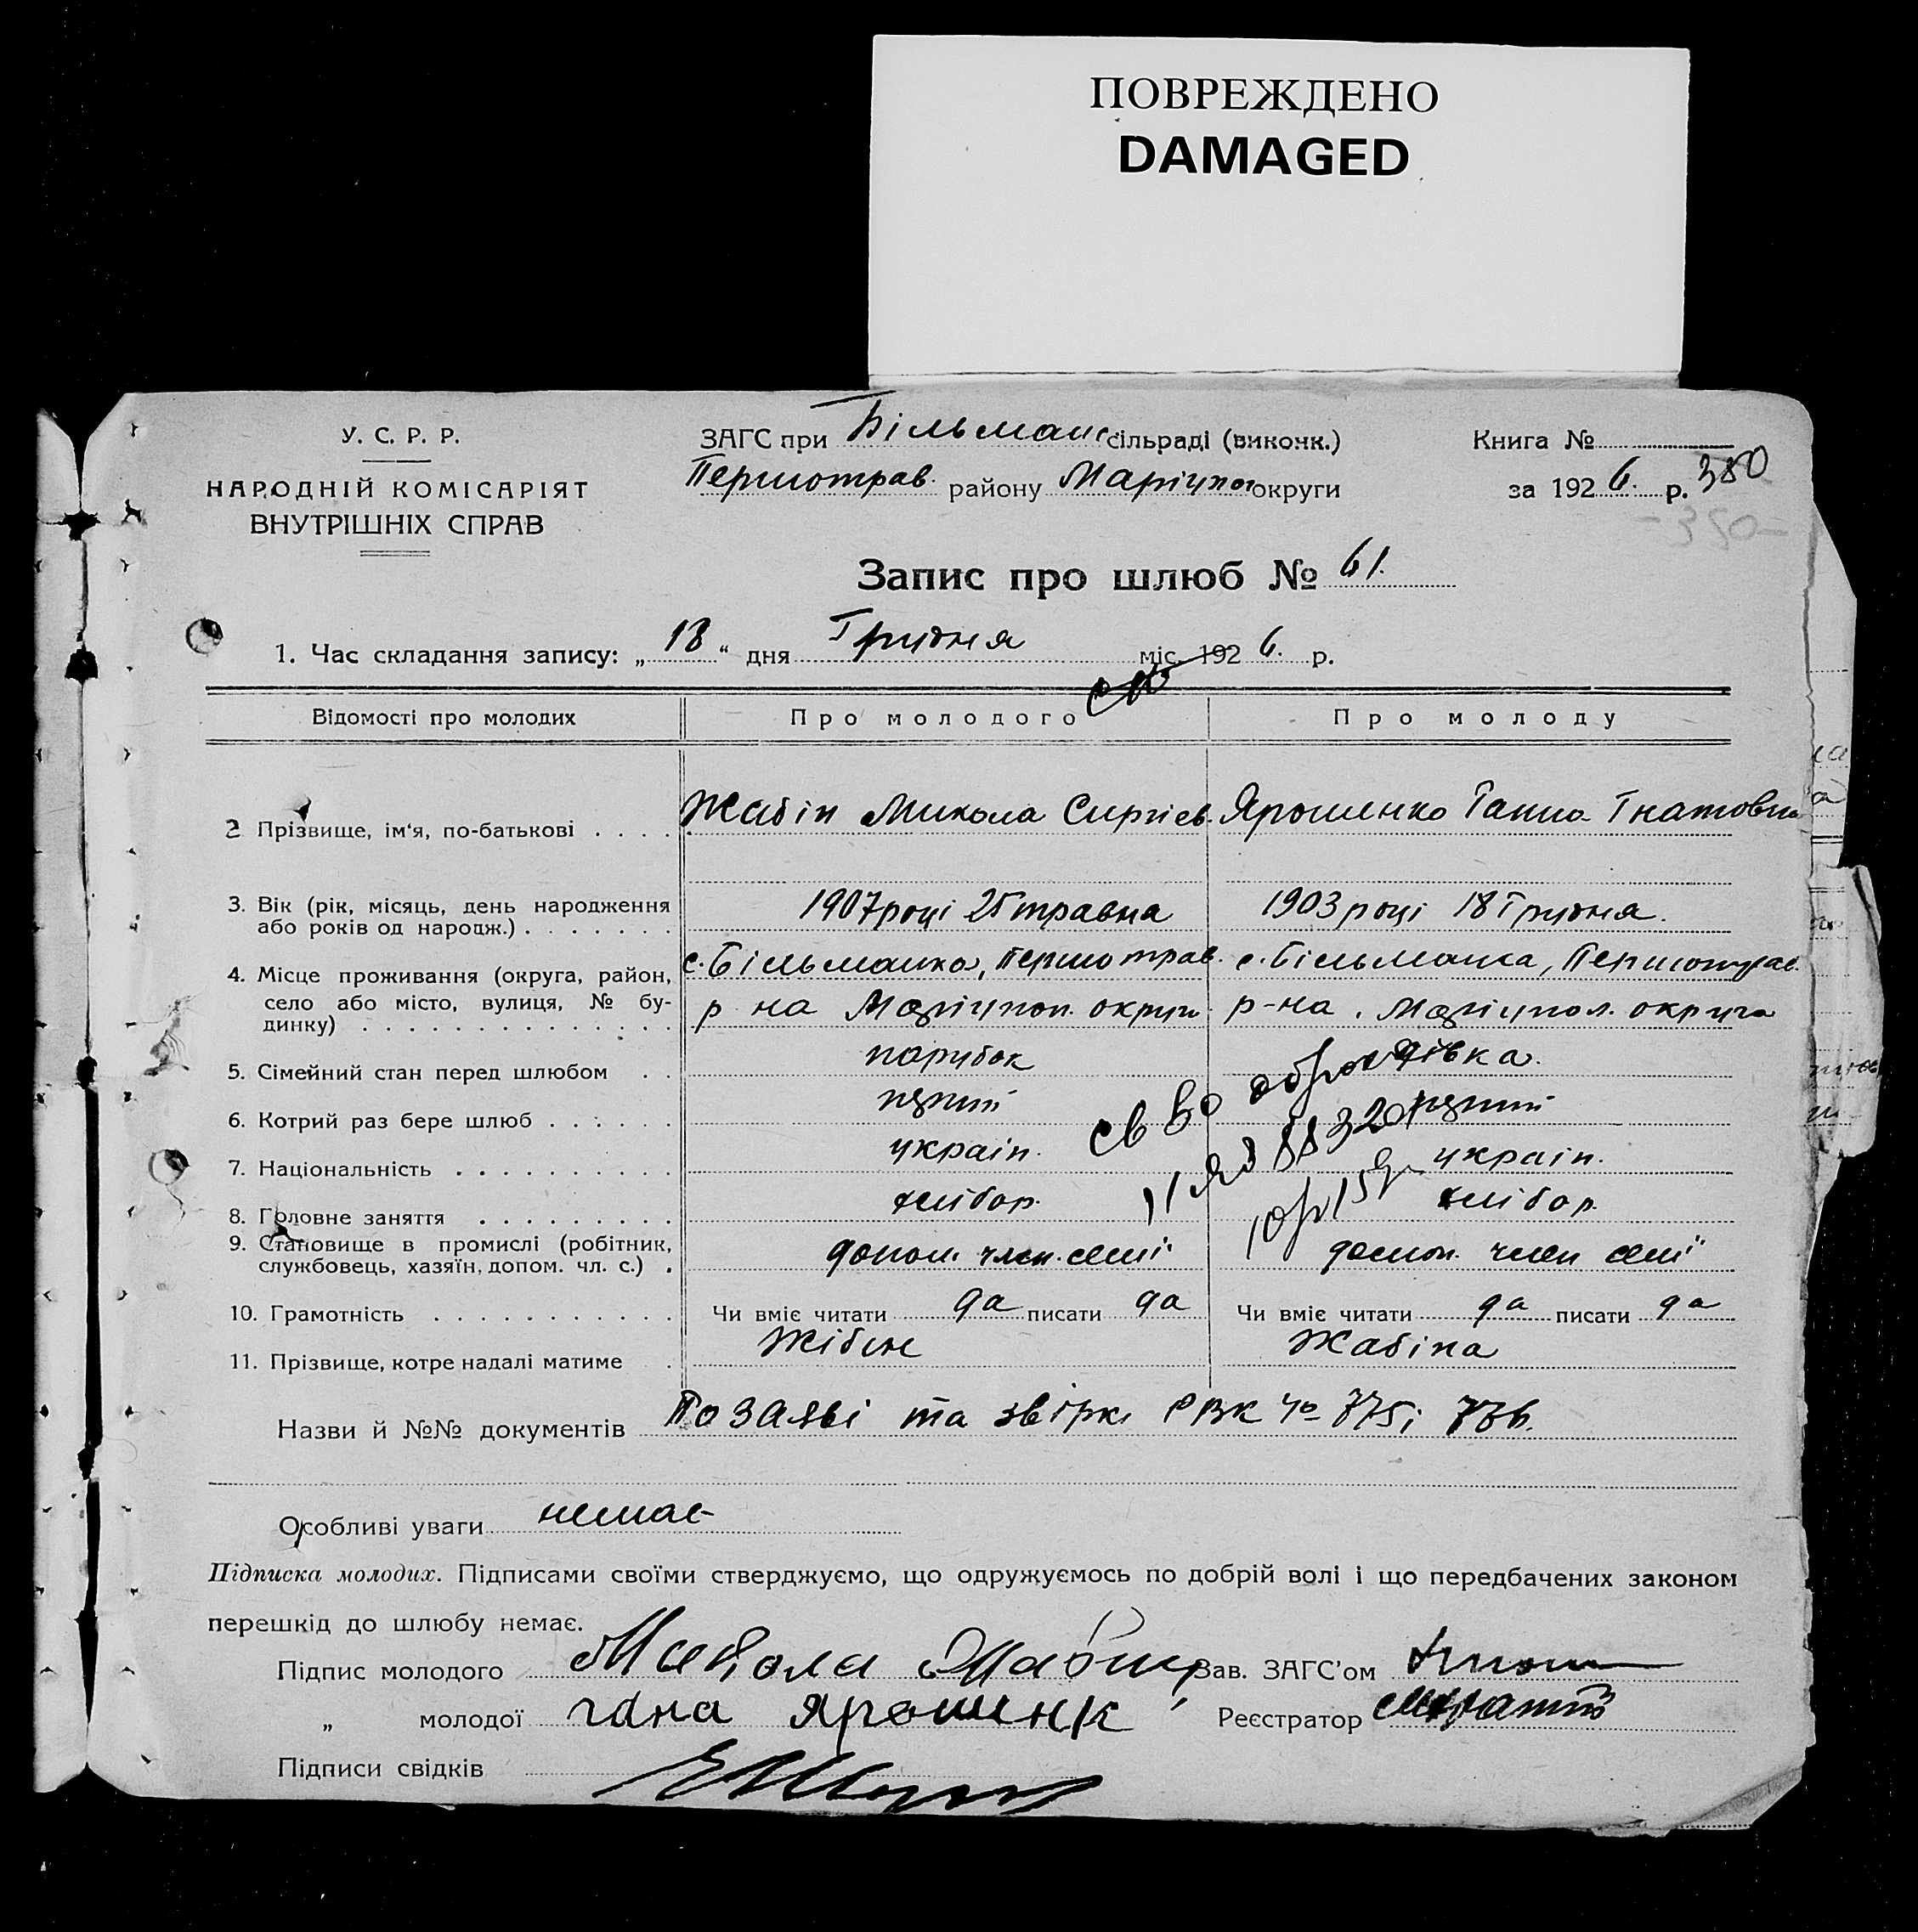 ПОВРЕЖДЕНО
DAMAGED
У. С. Р. Р.
НАРОДНІЙ КОМІСАРІЯТ
ВНУТРІШНІХ СПРАВ
ЗАГС при Більманс сільраді (виконк.)
Першотрав. району Маріупол округи
Книга №
за 1926. р. 380
-350-
Запис про шлюб № 61.
1. Час складання запису: „18“ дня Грудня міс. 1926. р.
Відомості про молодих Про молодого Про молоду
2 Прізвище, ім‘я, по-батькові . . . . Жабін Микола Сиргієв. Ярошенко Ганна Гнатовна
3. Вік (рік, місяць, день народження
або років од народж.) . . . . . . . 1907 році 25 травна 1903 році 18 Грудня.
4. Місце проживання (округа, район, с. Більманка, Першотрав. с. Більманка, Першотрав.
село або місто, вулиця, № бу- р на Маріупол. округи р-на, Маріупол. округи
динку) . . . . . . . . . . . . . .
5. Сімейний стан перед шлюбом . . парубок дівка.
6. Котрий раз бере шлюб . . . . . .
7. Національність . . . . . . . . . . україн. україн.
8. Головне заняття . . . . . . . . . хлібор. хлібор.
9. Становище в промислі (робітник,
службовець, хазяїн, допом. чл. с.) . допом. член. семї допом. член семї
10. Грамотність . . . . . . . . . . . Чи вміє читати да писати да Чи вміє читати да писати да
11. Прізвище, котре надалі матиме . Жібін Жабіна
Назви й №№ документів По заяві та звірки РВК № 775 і 776.
Особливі уваги немає
Підписка молодих. Підписами своїми стверджуємо, що одружуємось по добрій волі і що передбачених законом
перешкід до шлюбу немає.
Підпис молодого Микола Жабин Зав. ЗАГС’ом
„ молодої гана Ярошинк Реєстратор
Підписи свідків